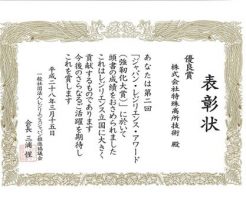 表彰状
優良賞
株式会社特殊高所技術 殿
あなたは第二回
「ジャパン・レジリエンス・アワード
(強靭化大賞)」に於いて
頭書の成績をおさめられました
これはレジリエンス立国に大きく
貢献するものであります
今後のさらなるご活躍を期待し
これを賞します
平成二十八年三月十五日
一般社団法人レジリエンスジャパン推進協議会
会長 三浦惺